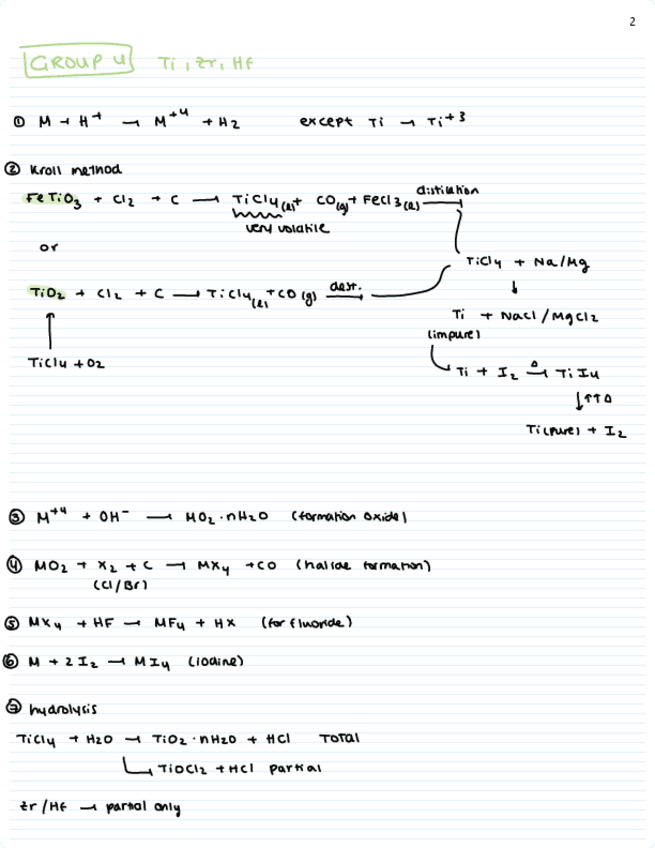 2
GROUP 4 Ti, Zr, Hf
① M + H⁺ → M⁺⁴ + H₂ except Ti → Ti⁺³
② Kroll method
FeTiO₃ + Cl₂ + C → TiCl₄(l) + CO(g) + FeCl₃(l) distilation →
very volatile
or
TiCl₄ + Na/Mg
TiO₂ + Cl₂ + C → TiCl₄(l) + CO(g) dest. →
↓
Ti + NaCl/MgCl₂
(impure)
↑
TiCl₄ + O₂
Ti + I₂ →Δ TiI₄
↓↑↑Δ
Ti(pure) + I₂
③ M⁺⁴ + OH⁻ → MO₂·nH₂O (formation oxide)
④ MO₂ + X₂ + C → MX₄ + CO (halide formation)
(Cl/Br)
⑤ MX₄ + HF → MF₄ + HX (for fluoride)
⑥ M + 2I₂ → MI₄ (iodine)
⑦ hydrolysis
TiCl₄ + H₂O → TiO₂·nH₂O + HCl TOTAL
↳ TiOCl₂ + HCl partial
Zr/Hf → partial only